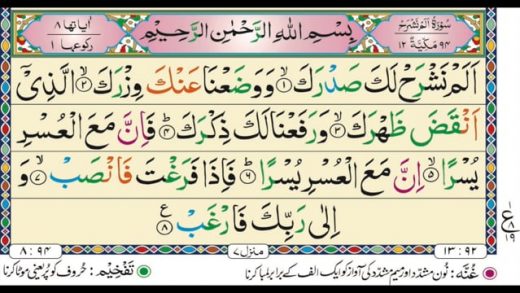 سُوْرَةُ اَلَمْ نَشْرَحْ
٩٤ مَكِّيَّةٌ ١٢
بِسْمِ اللهِ الرَّحْمٰنِ الرَّحِيْمِ
اٰيَاتُهَا ٨
رُكُوْعُهَا ١
اَلَمْ نَشْرَحْ لَكَ صَدْرَكَ ۙ﴿١﴾ وَوَضَعْنَا عَنْكَ وِزْرَكَ ۙ﴿٢﴾ الَّذِيْۤ
اَنْقَضَ ظَهْرَكَ ۙ﴿٣﴾ وَرَفَعْنَا لَكَ ذِكْرَكَ ؕ﴿٤﴾ فَاِنَّ مَعَ الْعُسْرِ
يُسْرًا ۙ﴿٥﴾ اِنَّ مَعَ الْعُسْرِ يُسْرًا ؕ﴿٦﴾ فَاِذَا فَرَغْتَ فَانْصَبْ ۙ﴿٧﴾ وَ
اِلٰى رَبِّكَ فَارْغَبْ ﴿٨﴾ ع
ع ٨ ١٩
١٣ : ٩٢
منزل ٧
٨ : ٩٤
غُنَّه: نون مشدّد اور میم مشدّد کی آواز کو ایک الف کے برابر لمبا کرنا
تَفْخِیْم: حروف کو پُر یعنی موٹا کرنا